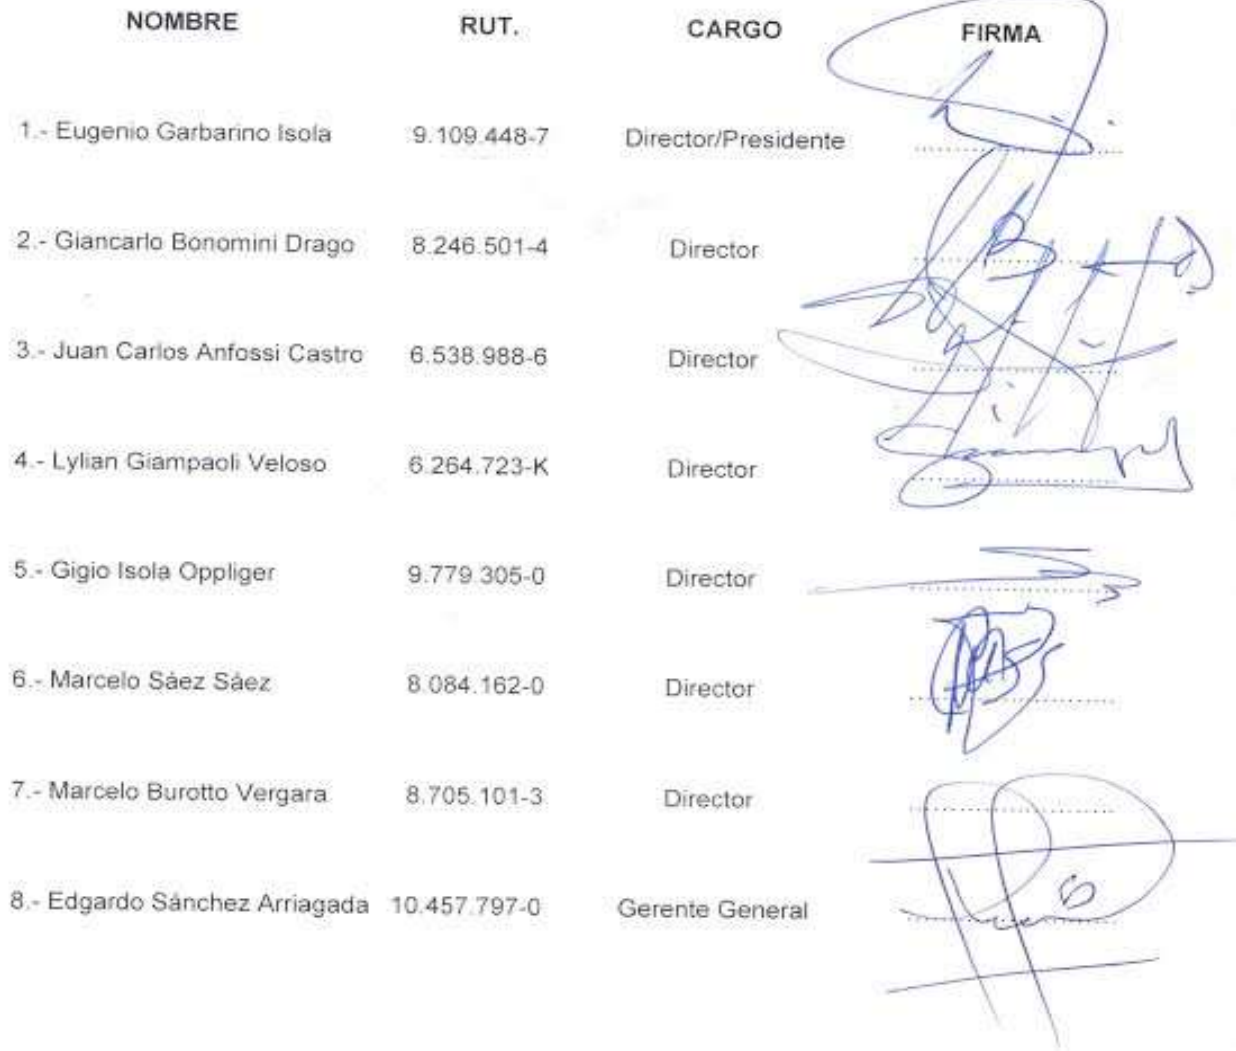 NOMBRE RUT. CARGO FIRMA
1.- Eugenio Garbarino Isola 9.109.448-7 Director/Presidente
2.- Giancarlo Bonomini Drago 8.246.501-4 Director
3.- Juan Carlos Anfossi Castro 6.538.988-6 Director
4.- Lylian Giampaoli Veloso 6.264.723-K Director
5.- Gigio Isola Oppliger 9.779.305-0 Director
6.- Marcelo Sáez Sáez 8.084.162-0 Director
7.- Marcelo Burotto Vergara 8.705.101-3 Director
8.- Edgardo Sánchez Arriagada 10.457.797-0 Gerente General